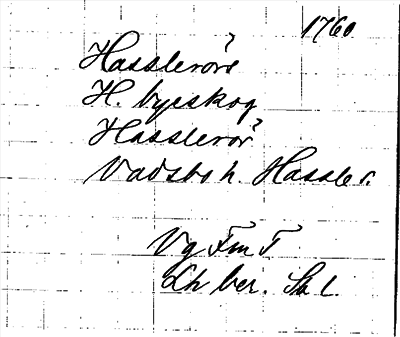 1760
Hasslerör
H. byaskog
Hasslerör
Vadsbo h. Hassle s.
Vg Fm T
Lh ber. Sk l.